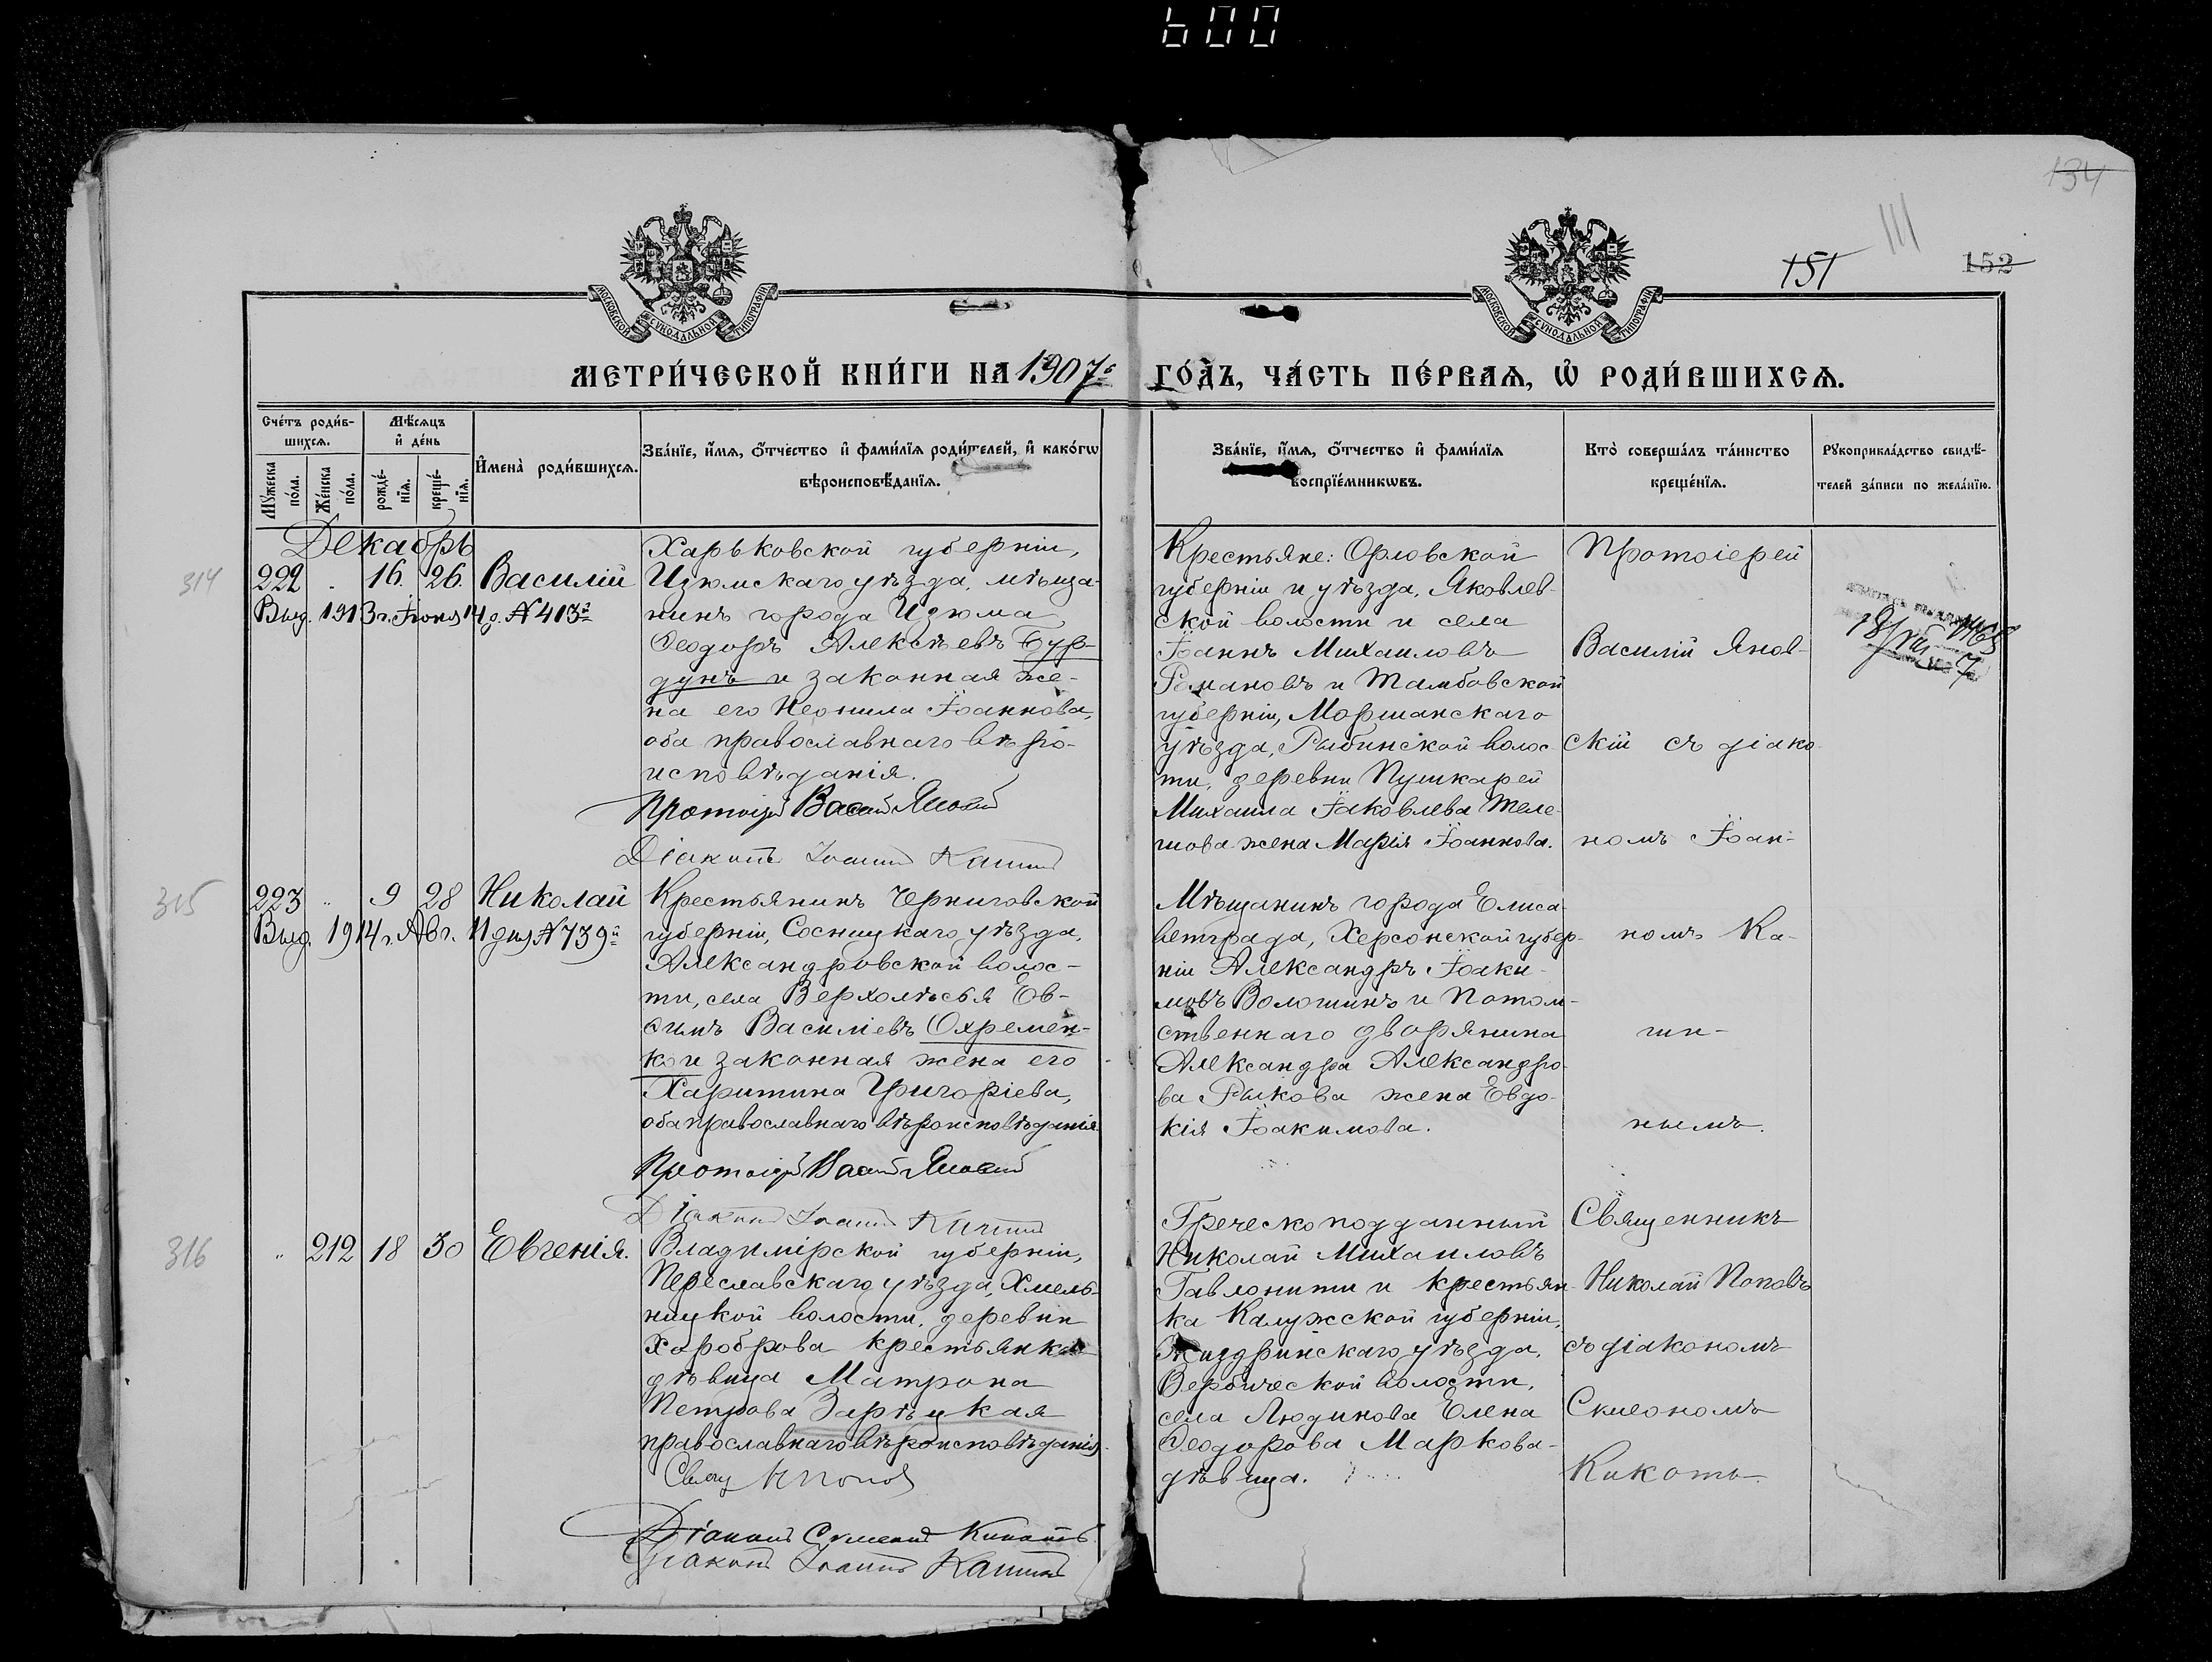 600
134
111
151
152
МОСКОВСКОЙ СѴНОДАЛЬНОЙ ТИПОГРАФІИ
МОСКОВСКОЙ СѴНОДАЛЬНОЙ ТИПОГРАФІИ
МЕТРИ́ЧЕСКОЙ КНИ́ГИ НА 1907 г ГО́ДЪ, ЧА́СТЬ ПЕ́РВАѦ, Ѡ РОДИ́ВШИХСѦ.
Счетъ родив-
шихсѧ.
Мужеска
пола.
Женска
пола.
Мѣсѧцъ
и день
рожде-
нїѧ.
креще-
нїѧ.
Имена родившихсѧ.
Званїе, имѧ, отчество и фамилїѧ родителей, и какогѡ
вѣроисповѣданїѧ.
Званїе, имѧ, отчество и фамилїѧ
воспрїемникѡвъ.
Кто совершалъ таинство
крещенїѧ.
Рукоприкладство свидѣ-
телей записи по желанїю.
Декабрь
314
222 16. 26. Василій
Выд. 1913 г. Іюня 14 д. № 413й
Харьковской губерніи,
Изюмскаго уѣзда, мѣща-
нинъ города Изюма
Ѳеодоръ Алексѣевъ Бур-
дунъ и законная же-
на его Неонила Іоаннова,
оба православнаго вѣро-
исповѣданія.
Протоіер Васил Яновскій
Діаконъ Іоаннъ Кашинъ
Крестьяне: Орловской
губерніи и уѣзда, Яковлев-
ской волости и села
Іоаннъ Михаиловъ
Романовъ и Тамбовской
губерніи, Моршанскаго
уѣзда, Рыбинской волос-
ти, деревни Пушкарей
Михаила Іаковлева Теле-
гиова жена Марія Іоаннова.
Протоіерей
Василій Янов-
скій съ діако-
номъ Іоан-
18/VIII
315
223 " 9 28 Николай
Выд. 1914 г. Авг. 11 дня № 739й
Крестьянинъ Черниговской
губерніи, Сосницкаго уѣзда,
Александровской волос-
ти, села Верхолѣсья Ев-
ѳимъ Василіевъ Охремен-
ко и законная жена его
Харитина Григоріева,
оба православнаго вѣроисповѣданія.
Протоіер Васил Яновскій
Діаконъ Іоаннъ Кашинъ
Мѣщанинъ города Елиса-
ветграда, Херсонской губер-
ніи Александръ Іоаки-
мовъ Волошинъ и потом-
ственнаго дворянина
Александра Александро-
ва Рыкова жена Евдо-
кія Іоакимова.
номъ Ка-
ши-
нымъ.
316
" 212 18 30 Евгенія.
Владимірской губерніи,
Переславскаго уѣзда, Хмель-
ницкой волости, деревни
Хороброва крестьянка
дѣвица Матрона
Петрова Зарѣцкая
православнаго вѣроисповѣданія.
Свящ Н Поповъ
Діаконъ Сѵмеонъ Кикоть
Діаконъ Іоаннъ Кашинъ
Греческоподданный
Николай Михаиловъ
Гавлонити и крестьян-
ка Калужской губерніи,
Жиздринскаго уѣзда,
Вербической волости,
села Людинова Елена
Ѳеодорова Маркова-
дѣвица.
Священникъ
Николай Поповъ
съ діакономъ
Сѵмеономъ
Кикоть.